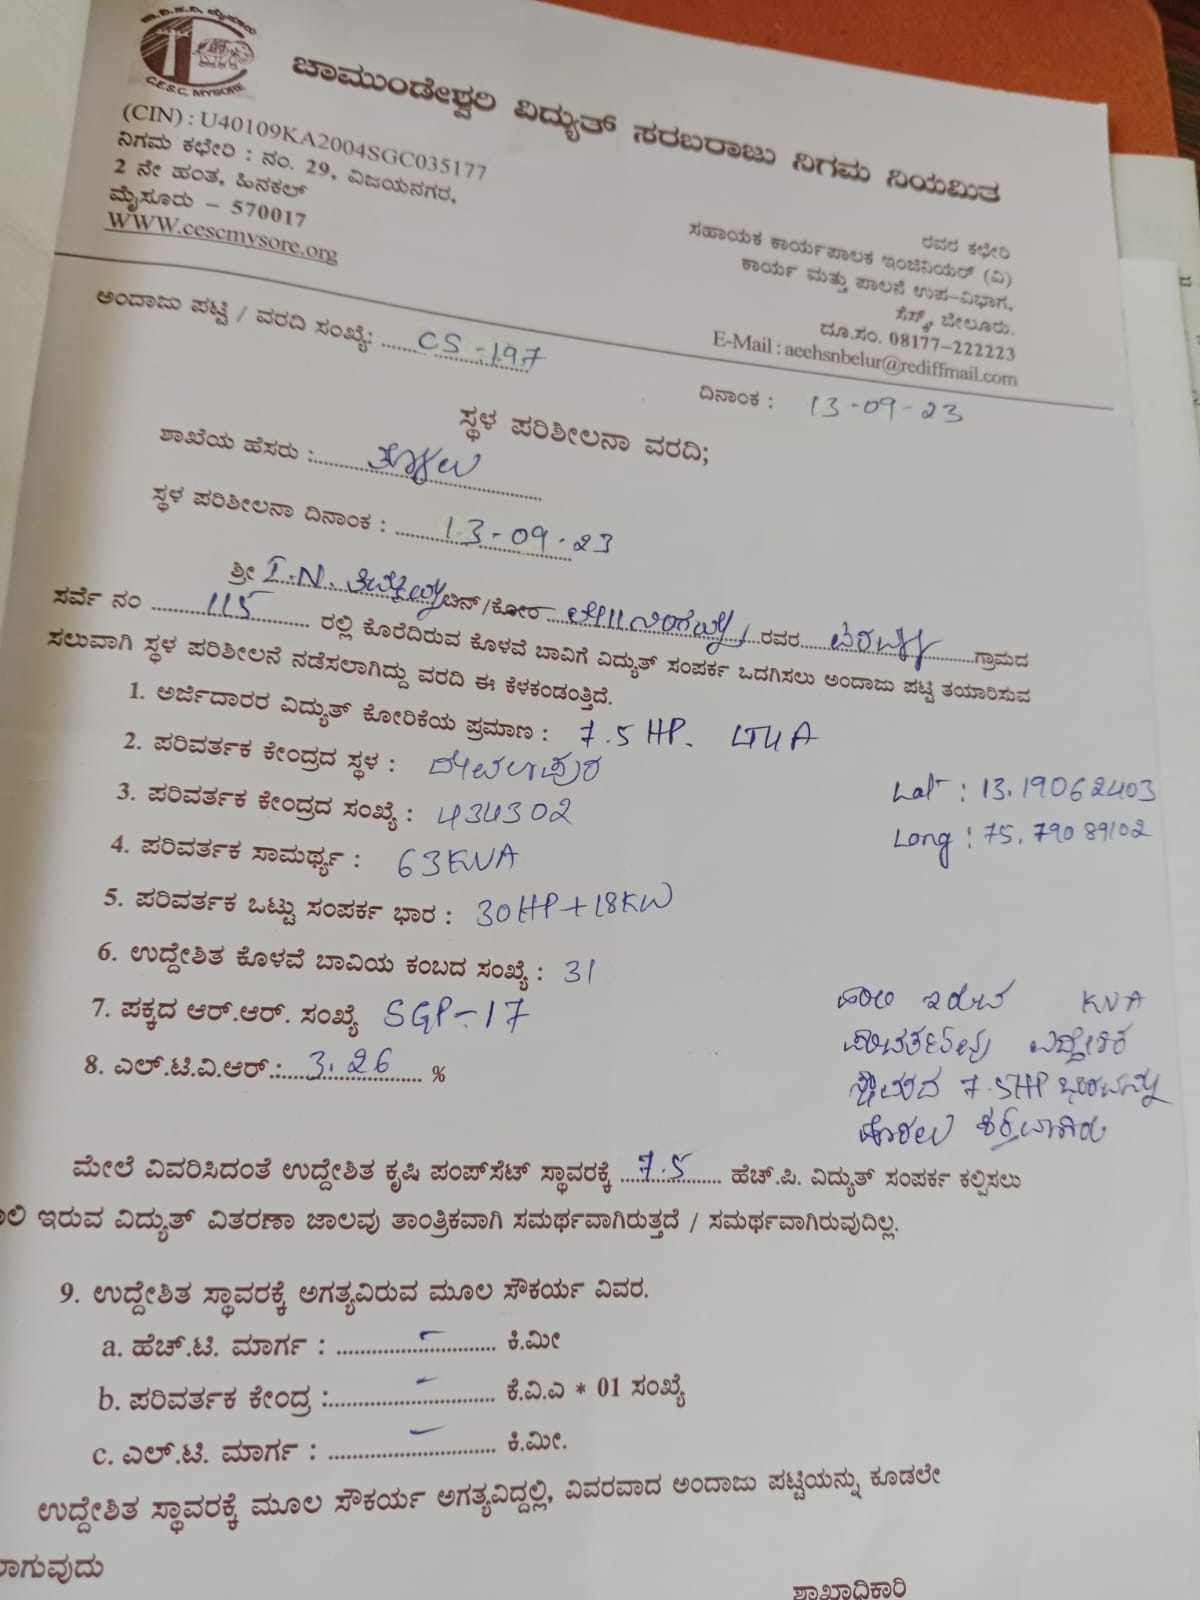 ಚಾ.ವಿ.ಸ.ನಿ. ಮೈಸೂರು
C.E.S.C. MYSORE
ಚಾಮುಂಡೇಶ್ವರಿ ವಿದ್ಯುತ್ ಸರಬರಾಜು ನಿಗಮ ನಿಯಮಿತ
(CIN) : U40109KA2004SGC035177
ನಿಗಮ ಕಛೇರಿ : ನಂ. 29, ವಿಜಯನಗರ,
2 ನೇ ಹಂತ, ಹಿನಕಲ್
ಮೈಸೂರು – 570017
WWW.cescmysore.org
ರವರ ಕಛೇರಿ
ಸಹಾಯಕ ಕಾರ್ಯಪಾಲಕ ಇಂಜಿನಿಯರ್ (ವಿ)
ಕಾರ್ಯ ಮತ್ತು ಪಾಲನೆ ಉಪ-ವಿಭಾಗ,
ಸೆಸ್ಕ್, ಬೇಲೂರು.
ದೂ.ಸಂ. 08177-222223
E-Mail : aeehsnbelur@rediffmail.com
ಅಂದಾಜು ಪಟ್ಟಿ / ವರದಿ ಸಂಖ್ಯೆ: CS-197
ದಿನಾಂಕ : 13-09-23
ಸ್ಥಳ ಪರಿಶೀಲನಾ ವರದಿ;
ಶಾಖೆಯ ಹೆಸರು :
ಸ್ಥಳ ಪರಿಶೀಲನಾ ದಿನಾಂಕ : 13-09-23
ಶ್ರೀ ಬಿನ್/ಕೋರ ರವರ ಗ್ರಾಮದ
ಸರ್ವೆ ನಂ 115 ರಲ್ಲಿ ಕೊರೆದಿರುವ ಕೊಳವೆ ಬಾವಿಗೆ ವಿದ್ಯುತ್ ಸಂಪರ್ಕ ಒದಗಿಸಲು ಅಂದಾಜು ಪಟ್ಟಿ ತಯಾರಿಸುವ
ಸಲುವಾಗಿ ಸ್ಥಳ ಪರಿಶೀಲನೆ ನಡೆಸಲಾಗಿದ್ದು ವರದಿ ಈ ಕೆಳಕಂಡಂತ್ತಿದೆ.
1. ಅರ್ಜಿದಾರರ ವಿದ್ಯುತ್ ಕೋರಿಕೆಯ ಪ್ರಮಾಣ : 7.5 HP. LT4A
2. ಪರಿವರ್ತಕ ಕೇಂದ್ರದ ಸ್ಥಳ : ದೇವಲಾಪುರ
Lat : 13.19062403
3. ಪರಿವರ್ತಕ ಕೇಂದ್ರದ ಸಂಖ್ಯೆ : 434302
Long : 75.79089102
4. ಪರಿವರ್ತಕ ಸಾಮರ್ಥ್ಯ : 63KVA
5. ಪರಿವರ್ತಕ ಒಟ್ಟು ಸಂಪರ್ಕ ಭಾರ : 30HP+18KW
6. ಉದ್ದೇಶಿತ ಕೊಳವೆ ಬಾವಿಯ ಕಂಬದ ಸಂಖ್ಯೆ : 31
7. ಪಕ್ಕದ ಆರ್.ಆರ್. ಸಂಖ್ಯೆ SGP-17
8. ಎಲ್.ಟಿ.ವಿ.ಆರ್.: 3.26 %
ಹಾಲಿ ಇರುವ KVA
ಪರಿವರ್ತಕವು ಉದ್ದೇಶಿತ
ಸ್ಥಾವರದ 7.5HP ಭಾರವನ್ನು
ಹೊರಲು ಶಕ್ತವಾಗಿದೆ
ಮೇಲೆ ವಿವರಿಸಿದಂತೆ ಉದ್ದೇಶಿತ ಕೃಷಿ ಪಂಪ್‌ಸೆಟ್ ಸ್ಥಾವರಕ್ಕೆ 7.5 ಹೆಚ್.ಪಿ. ವಿದ್ಯುತ್ ಸಂಪರ್ಕ ಕಲ್ಪಿಸಲು
ಲಿ ಇರುವ ವಿದ್ಯುತ್ ವಿತರಣಾ ಜಾಲವು ತಾಂತ್ರಿಕವಾಗಿ ಸಮರ್ಥವಾಗಿರುತ್ತದೆ / ಸಮರ್ಥವಾಗಿರುವುದಿಲ್ಲ.
9. ಉದ್ದೇಶಿತ ಸ್ಥಾವರಕ್ಕೆ ಅಗತ್ಯವಿರುವ ಮೂಲ ಸೌಕರ್ಯ ವಿವರ.
a. ಹೆಚ್.ಟಿ. ಮಾರ್ಗ : - ಕಿ.ಮೀ
b. ಪರಿವರ್ತಕ ಕೇಂದ್ರ : - ಕೆ.ವಿ.ಎ * 01 ಸಂಖ್ಯೆ
c. ಎಲ್.ಟಿ. ಮಾರ್ಗ : - ಕಿ.ಮೀ.
ಉದ್ದೇಶಿತ ಸ್ಥಾವರಕ್ಕೆ ಮೂಲ ಸೌಕರ್ಯ ಅಗತ್ಯವಿದ್ದಲ್ಲಿ, ವಿವರವಾದ ಅಂದಾಜು ಪಟ್ಟಿಯನ್ನು ಕೂಡಲೇ
ಾಗುವುದು
ಶಾಖಾಧಿಕಾರಿ